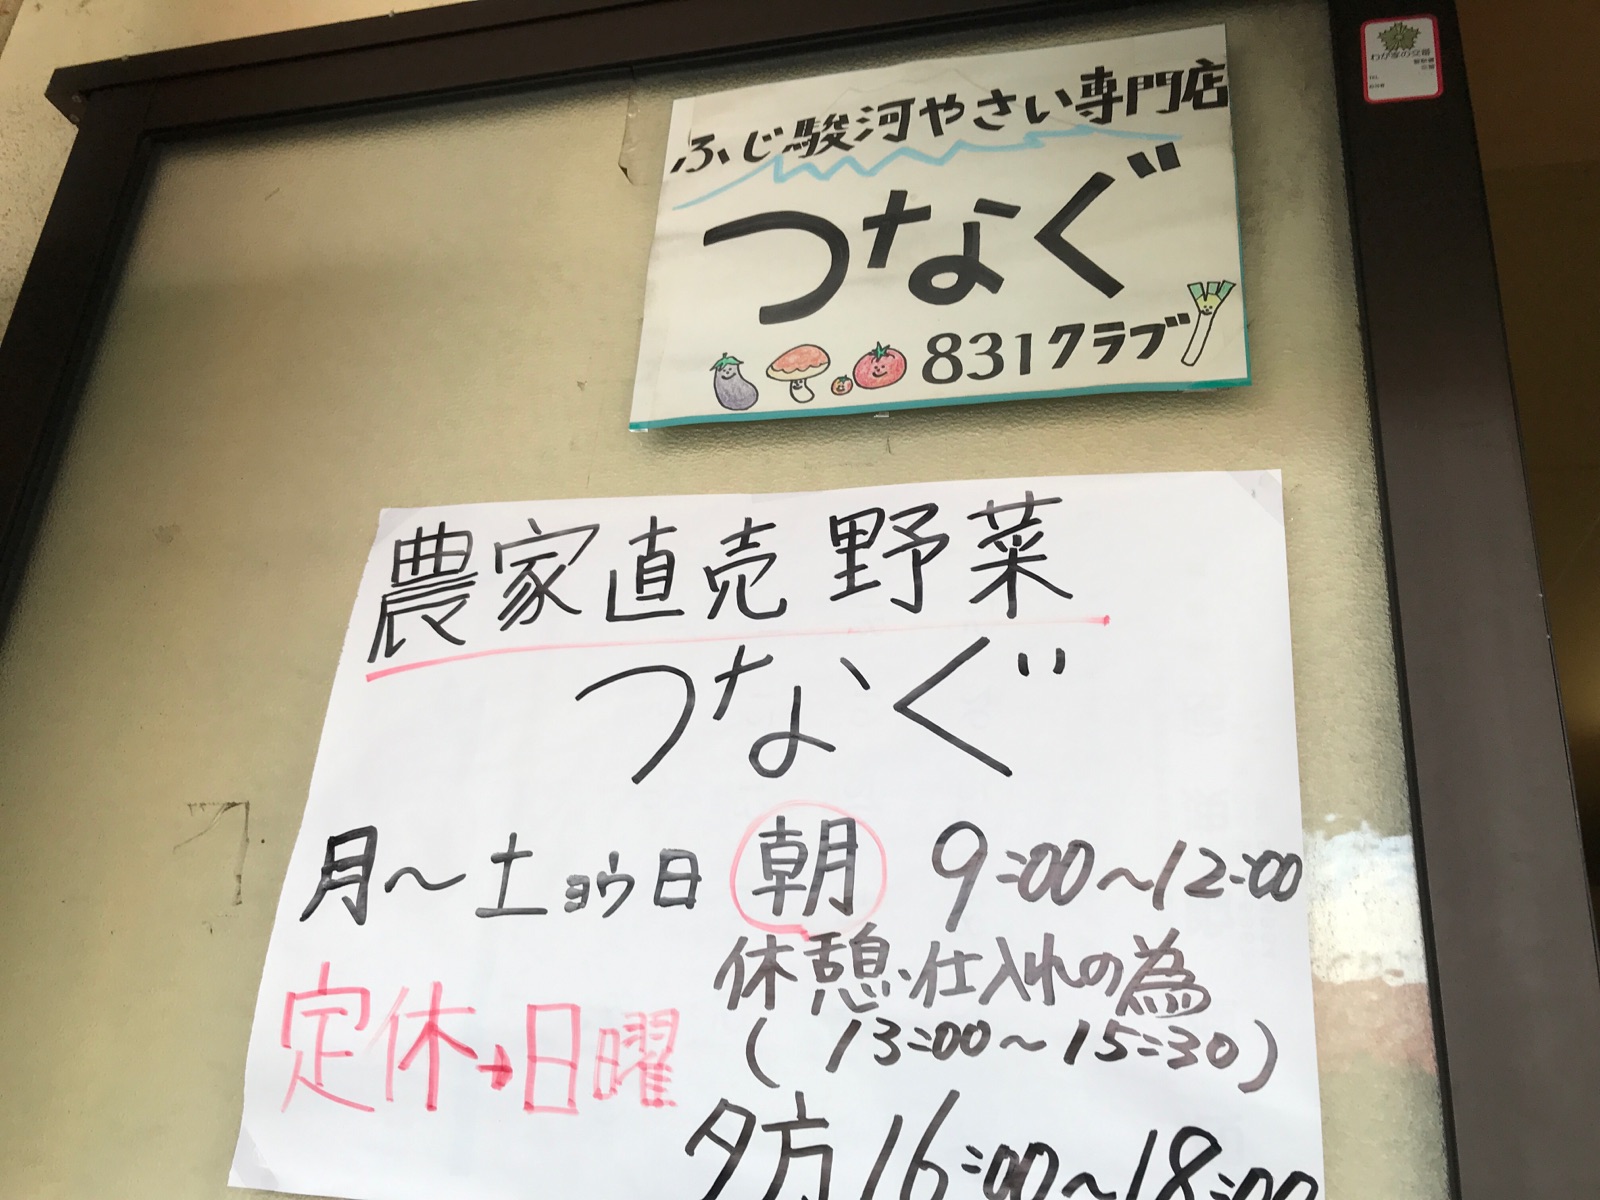 わが家の交番
ふじ駿河やさい専門店
つなぐ
831クラブ
農家直売野菜
つなぐ
月〜土ョウ日 朝 9:00〜12:00
休憩・仕入れの為
(13:00〜15:30)
定休→日曜
夕方16:00〜18:00